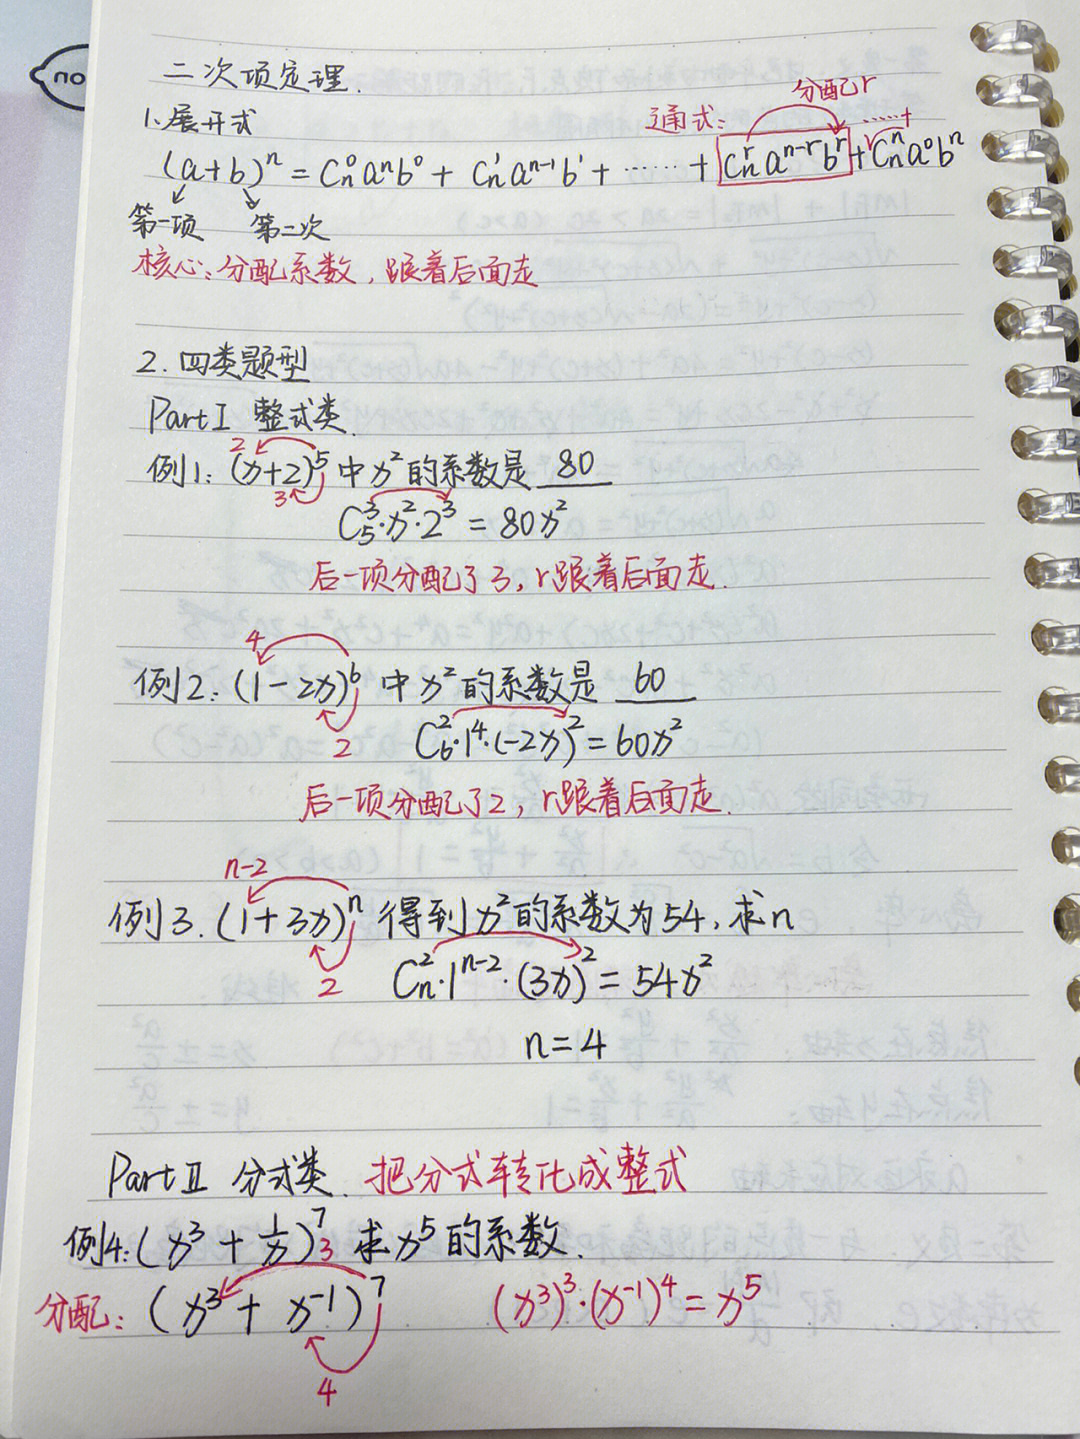 no
二次项定理.
1.展开式
通式: 分配r
(a+b)ⁿ = Cₙ⁰aⁿb⁰ + Cₙ¹aⁿ⁻¹b¹ + ⋯⋯ + Cₙʳaⁿ⁻ʳbʳ + Cₙⁿa⁰bⁿ
第一项 第二次
核心: 分配系数, 跟着后面走
2.四类题型
Part I 整式类.
例1: (x+2)⁵ 中 x² 的系数是 80
2
3
C₅³·x²·2³ = 80x²
后一项分配了3, r跟着后面走.
4
例2: (1-2x)⁶ 中 x² 的系数是 60
2
C₆²·1⁴·(-2x)² = 60x²
后一项分配了2, r跟着后面走.
n-2
例3. (1+3x)ⁿ 得到 x² 的系数为54, 求n
2
Cₙ²·1ⁿ⁻²·(3x)² = 54x²
n=4
Part II 分式类. 把分式转化成整式
例4: (x³ + 1/x)⁷ 求 x⁵ 的系数.
3
分配: (x³ + x⁻¹)⁷ (x³)³·(x⁻¹)⁴ = x⁵
4